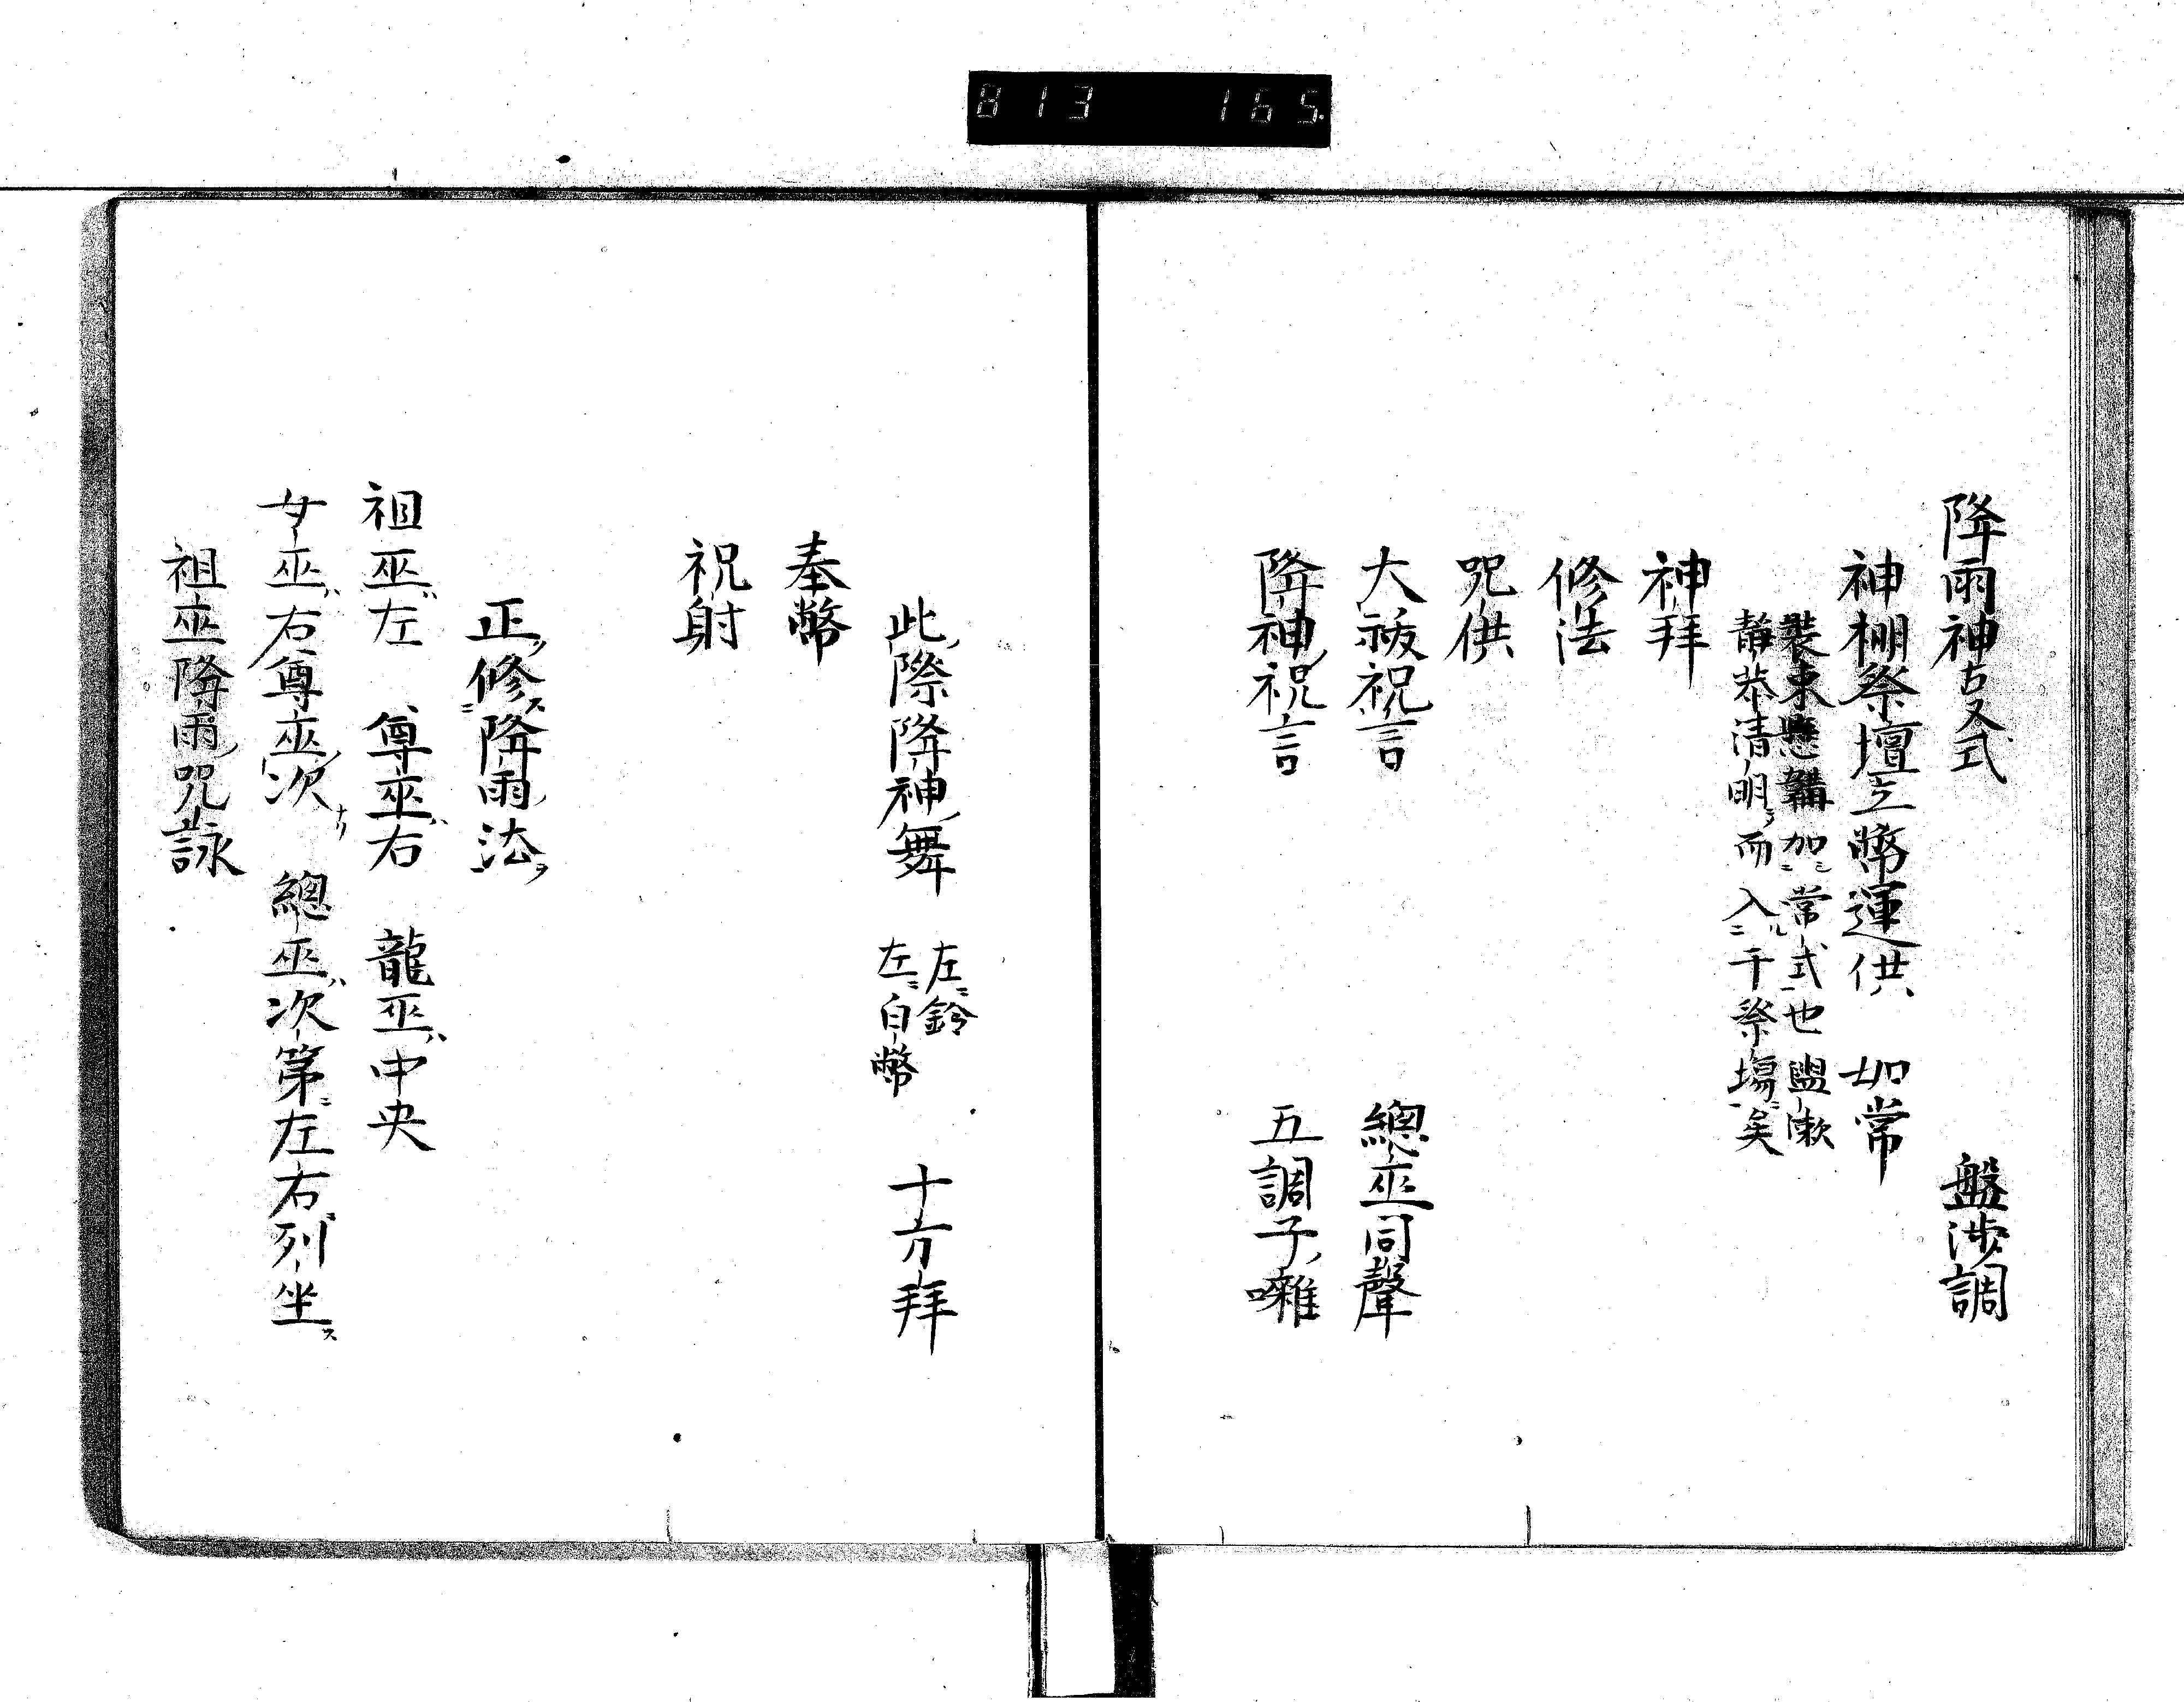 813 165
降雨神占文式 盤渉調
神棚祭壇立幣運供 如常
装束懸韝加ニ常式也盥漱
静恭清明ニ而入ル二于祭場ニ一矣
神拜
修法
咒供
大祓祝言 總巫同聲
降神ノ祝言 五調子ノ囃
此ノ際降神ノ舞 左ニ鈴 左ニ白幣 十方拜
奉幣
祝射
正ノ修ス二降雨ノ法ヲ一
祖巫ハ左 尊巫ハ右 龍巫ハ中央
女巫ハ右尊巫ノ次ナリ 總巫ハ次第ニ左右ニ列坐ス
祖巫降雨ノ咒詠